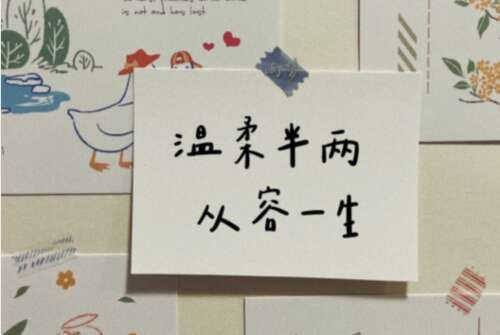 is not and has lost
温柔半两
从容一生